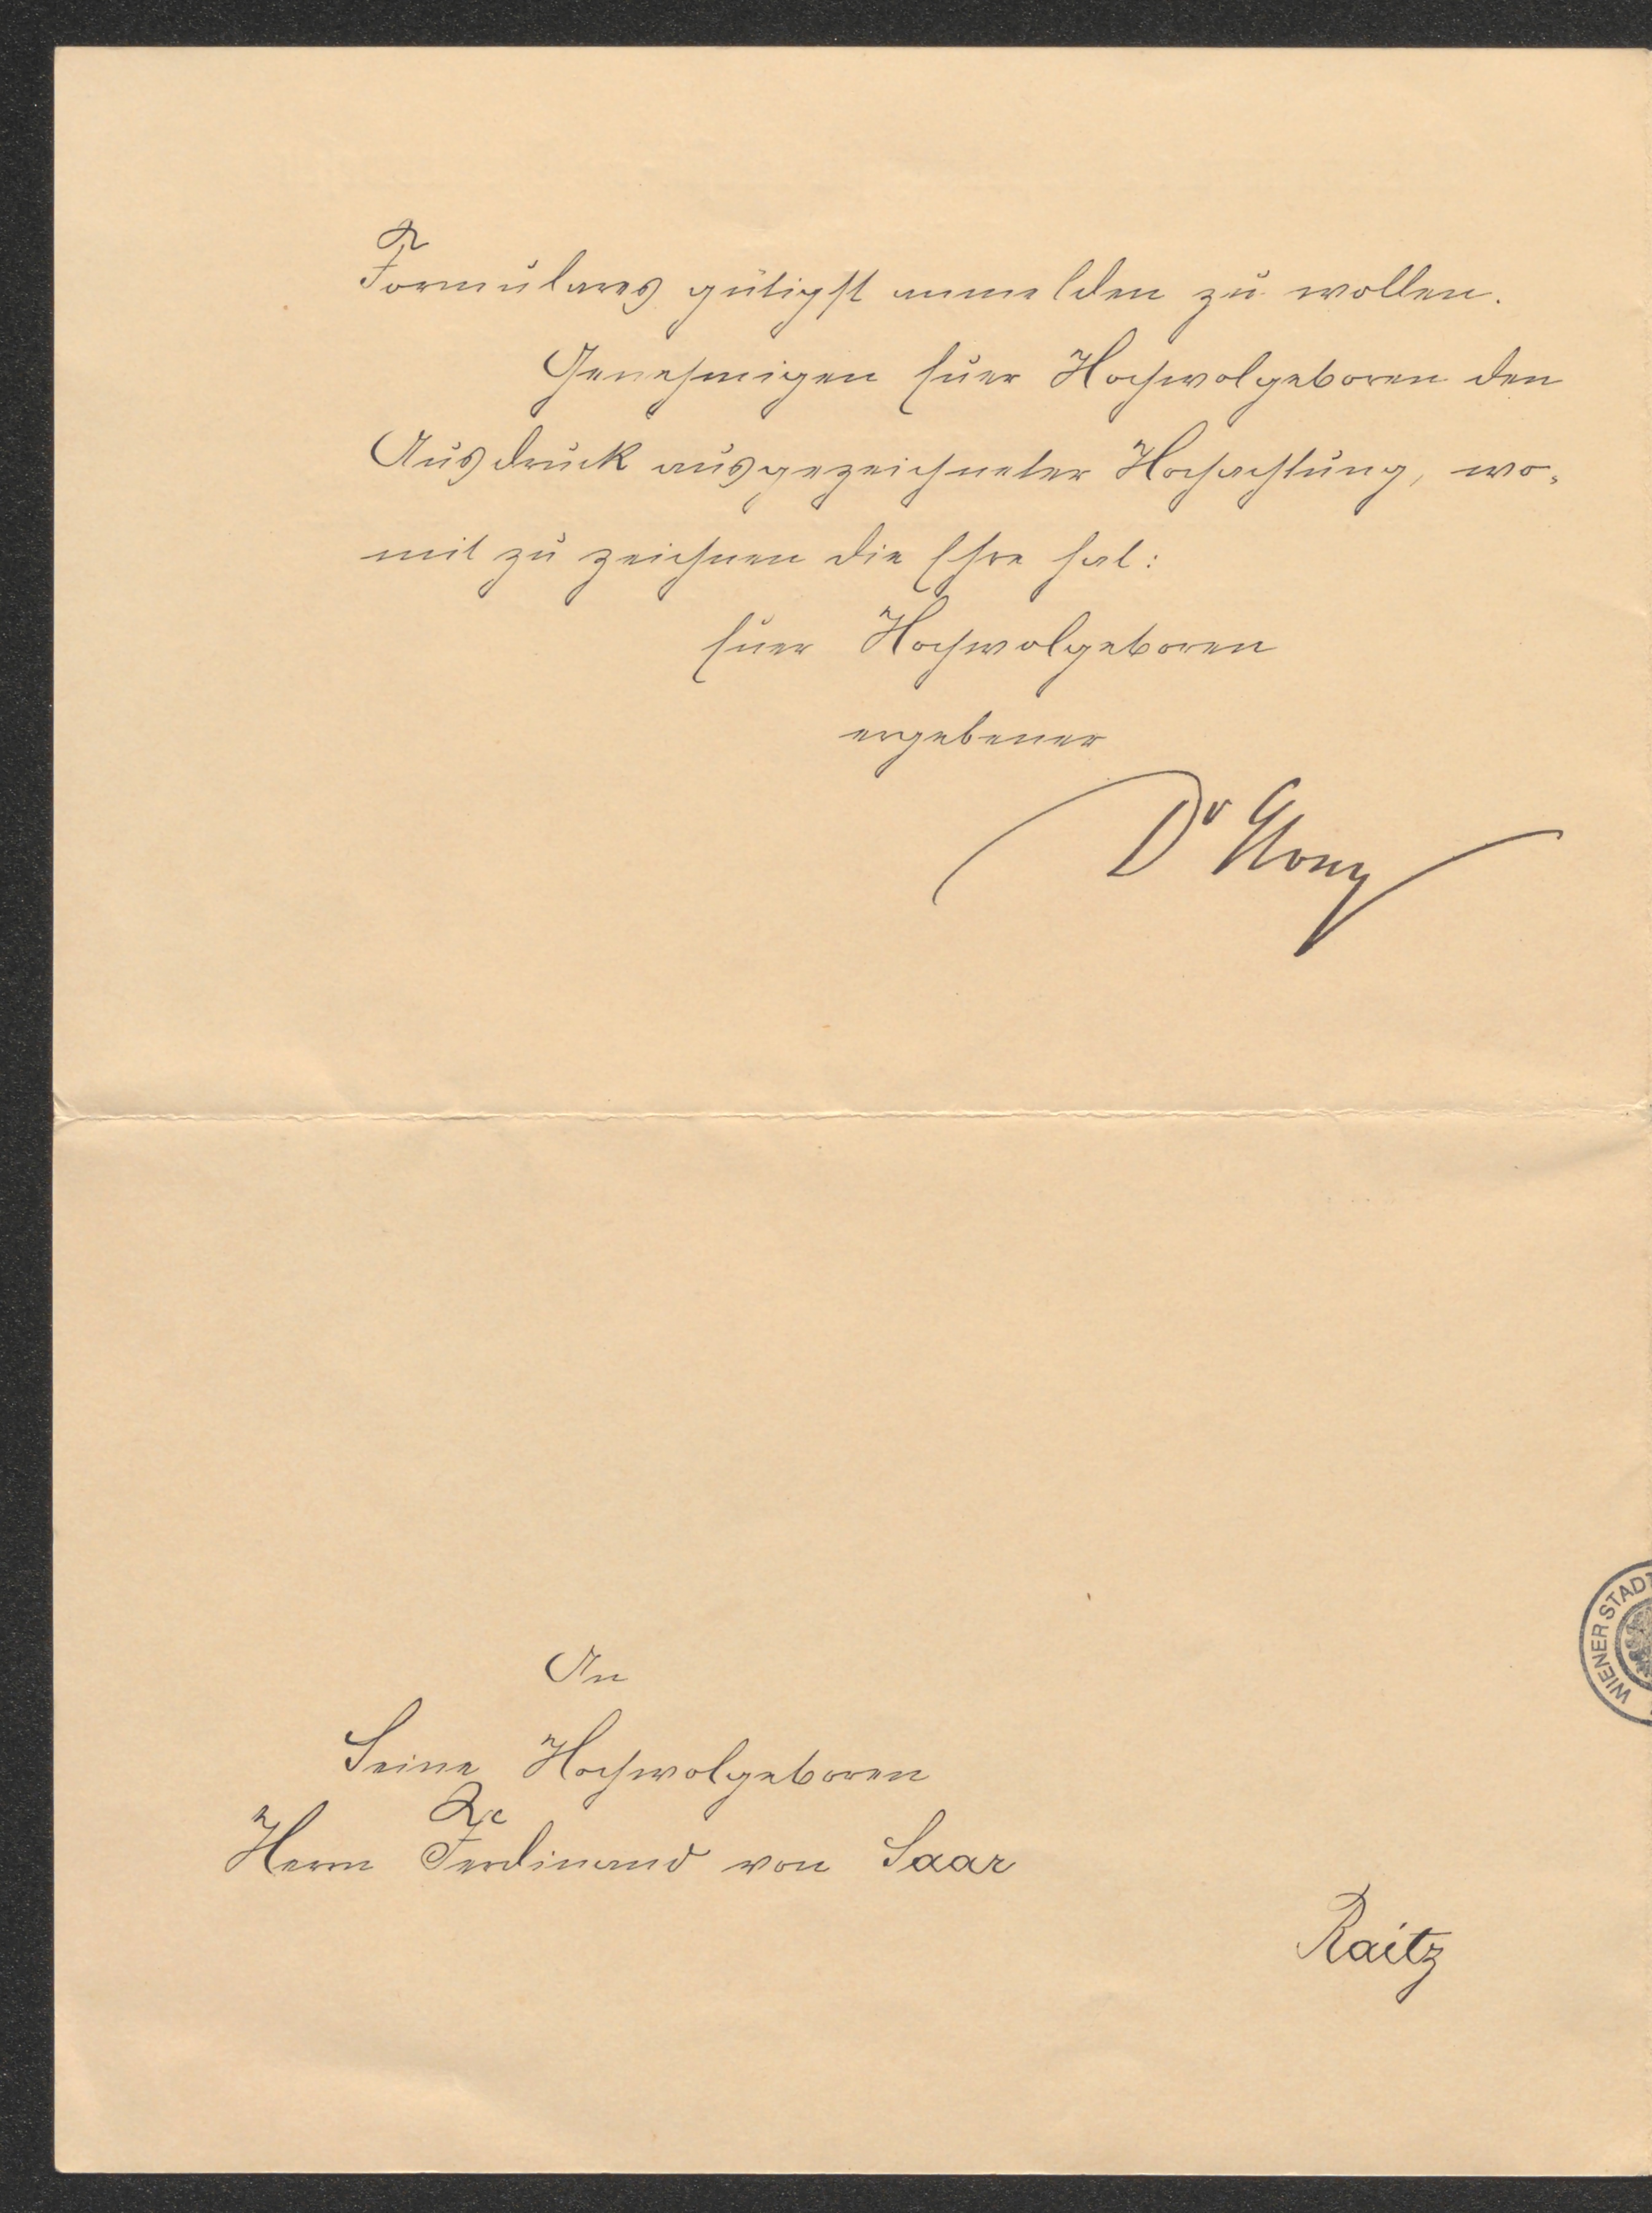 Formulares gütigst anmelden zu wollen.
Genehmigen Euer Hochwolgeboren den
Ausdruck ausgezeichneter Hochachtung, wo-
mit zu zeichnen die Ehre hat:
Euer Hochwolgeboren
ergebener
Dr Glossy
WIENER STADT
An
Seine Hochwolgeboren
Herrn Ferdinand von Saar
Raitz